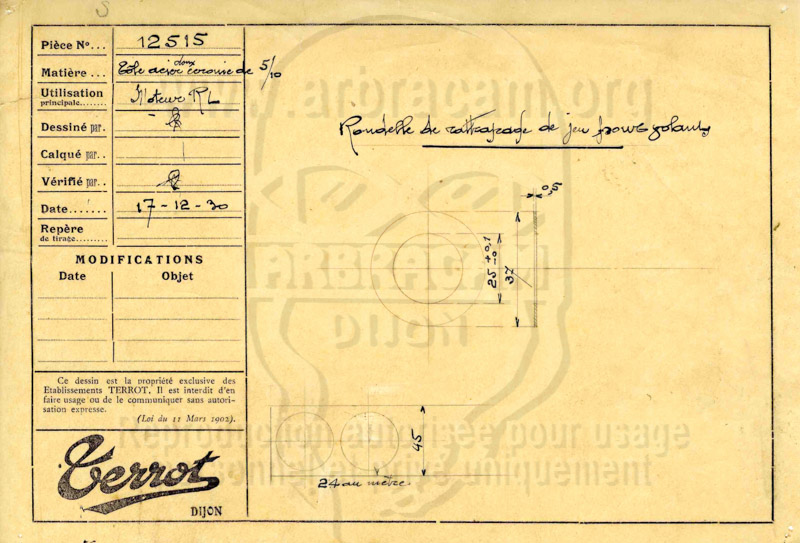 S
Pièce No... 12515
Matière ... Tôle acier doux de 5/10
Utilisation principale........ Moteur RL
Dessiné par.
Calqué par..
Vérifié par..
Date....... 17-12-30
Repère de tirage..........
MODIFICATIONS
Date Objet
Ce dessin est la propriété exclusive des
Etablissements TERROT. Il est interdit d'en
faire usage ou de le communiquer sans autori-
sation expresse.
(Loi du 11 Mars 1902).
Terrot
DIJON
www.arbracam.org
Rondelle de rattrapage de jeu pour volants
0,5
25 +0,1 -0
37
ARBRACAM
DIJON
45
24 au mètre
Reproduction autorisée pour usage
uniquement